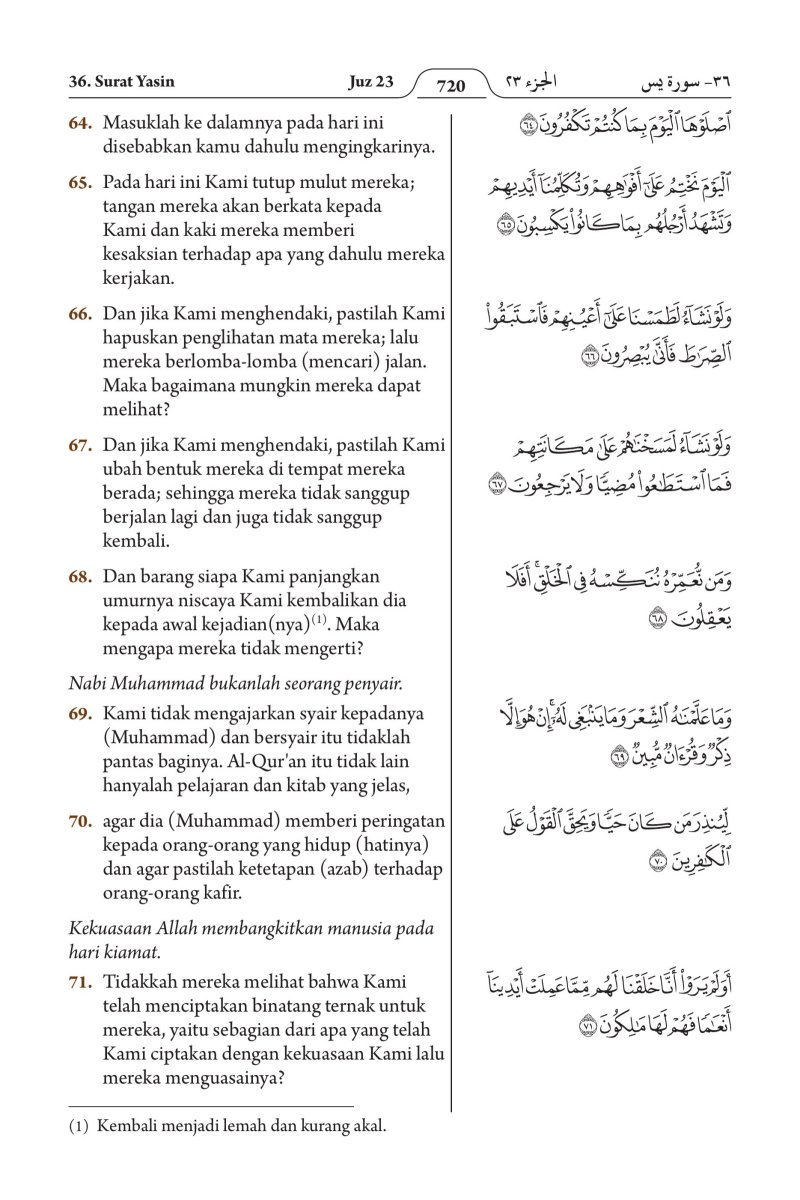 36. Surat Yasin Juz 23 720 الجزء ٢٣ ٣٦- سورة يس
64. Masuklah ke dalamnya pada hari ini
disebabkan kamu dahulu mengingkarinya.
ٱصْلَوْهَا ٱلْيَوْمَ بِمَا كُنتُمْ تَكْفُرُونَ ٦٤
65. Pada hari ini Kami tutup mulut mereka;
tangan mereka akan berkata kepada
Kami dan kaki mereka memberi
kesaksian terhadap apa yang dahulu mereka
kerjakan.
ٱلْيَوْمَ نَخْتِمُ عَلَىٰٓ أَفْوَٰهِهِمْ وَتُكَلِّمُنَآ أَيْدِيهِمْ
وَتَشْهَدُ أَرْجُلُهُم بِمَا كَانُوا۟ يَكْسِبُونَ ٦٥
66. Dan jika Kami menghendaki, pastilah Kami
hapuskan penglihatan mata mereka; lalu
mereka berlomba-lomba (mencari) jalan.
Maka bagaimana mungkin mereka dapat
melihat?
وَلَوْ نَشَآءُ لَطَمَسْنَا عَلَىٰٓ أَعْيُنِهِمْ فَٱسْتَبَقُوا۟
ٱلصِّرَٰطَ فَأَنَّىٰ يُبْصِرُونَ ٦٦
67. Dan jika Kami menghendaki, pastilah Kami
ubah bentuk mereka di tempat mereka
berada; sehingga mereka tidak sanggup
berjalan lagi dan juga tidak sanggup
kembali.
وَلَوْ نَشَآءُ لَمَسَخْنَٰهُمْ عَلَىٰ مَكَانَتِهِمْ
فَمَا ٱسْتَطَٰعُوا۟ مُضِيًّا وَلَا يَرْجِعُونَ ٦٧
68. Dan barang siapa Kami panjangkan
umurnya niscaya Kami kembalikan dia
kepada awal kejadian(nya)(1). Maka
mengapa mereka tidak mengerti?
وَمَن نُّعَمِّرْهُ نُنَكِّسْهُ فِى ٱلْخَلْقِ ۖ أَفَلَا
يَعْقِلُونَ ٦٨
Nabi Muhammad bukanlah seorang penyair.
69. Kami tidak mengajarkan syair kepadanya
(Muhammad) dan bersyair itu tidaklah
pantas baginya. Al-Qur'an itu tidak lain
hanyalah pelajaran dan kitab yang jelas,
وَمَا عَلَّمْنَٰهُ ٱلشِّعْرَ وَمَا يَنۢبَغِى لَهُۥٓ ۚ إِنْ هُوَ إِلَّا
ذِكْرٌ وَقُرْءَانٌ مُّبِينٌ ٦٩
70. agar dia (Muhammad) memberi peringatan
kepada orang-orang yang hidup (hatinya)
dan agar pastilah ketetapan (azab) terhadap
orang-orang kafir.
لِّيُنذِرَ مَن كَانَ حَيًّا وَيَحِقَّ ٱلْقَوْلُ عَلَى
ٱلْكَٰفِرِينَ ٧٠
Kekuasaan Allah membangkitkan manusia pada
hari kiamat.
71. Tidakkah mereka melihat bahwa Kami
telah menciptakan binatang ternak untuk
mereka, yaitu sebagian dari apa yang telah
Kami ciptakan dengan kekuasaan Kami lalu
mereka menguasainya?
أَوَلَمْ يَرَوْا۟ أَنَّا خَلَقْنَا لَهُم مِّمَّا عَمِلَتْ أَيْدِينَآ
أَنْعَٰمًا فَهُمْ لَهَا مَٰلِكُونَ ٧١
(1) Kembali menjadi lemah dan kurang akal.